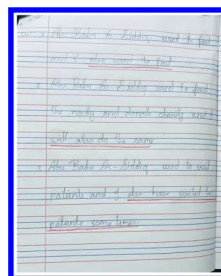 Abu Bakr As-Siddiq used to fast
and I have used to fast
Abu Bakr As-Siddiq used to feed
The needy and donate charity and I
will also do the same
Abu Bakr As-Siddiq used to visit
patients and I also have visited the
patients some times.